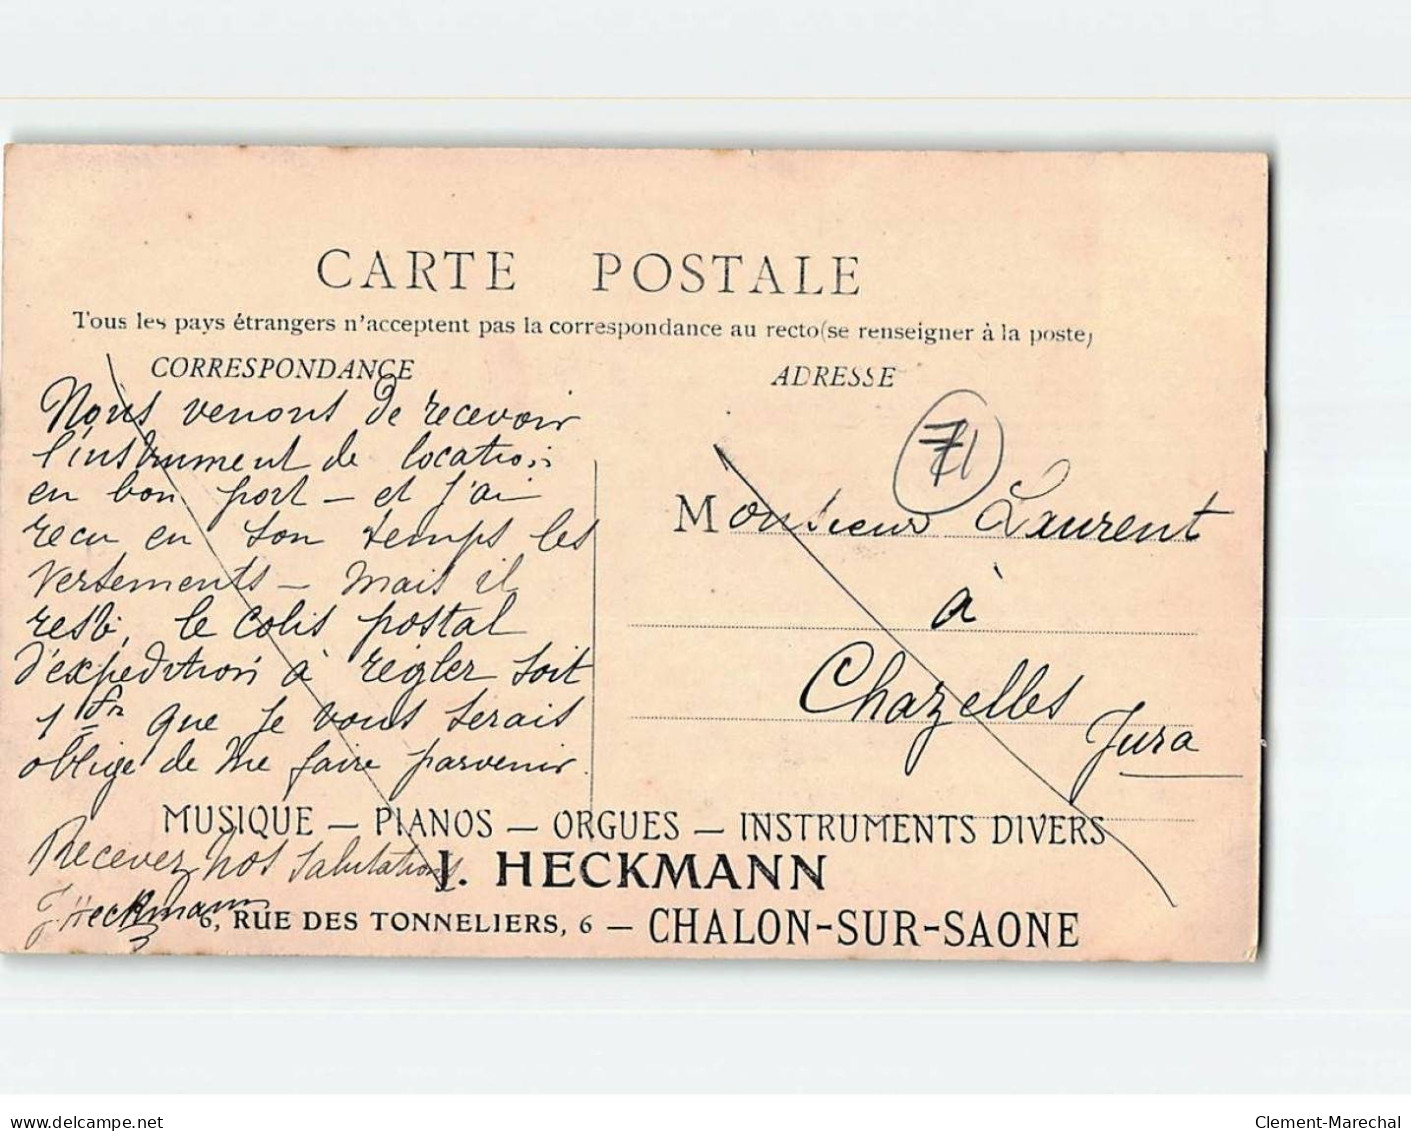 CARTE POSTALE
Tous les pays étrangers n'acceptent pas la correspondance au recto (se renseigner à la poste)
CORRESPONDANCE
Nous venons de recevoir
l'instrument de location
en bon port – et j'ai
recu en son temps les
versements – mais il
reste, le colis postal
d'expedition à régler soit
1 fr que je vous serais
obligé de me faire parvenir
Recevez nos salutations
J Heckmann
ADRESSE
71
Monsieur Laurent
à
Chazelles
Jura
MUSIQUE — PIANOS — ORGUES — INSTRUMENTS DIVERS
J. HECKMANN
6, RUE DES TONNELIERS, 6 — CHALON-SUR-SAONE
delcampe.net
Clement-Marechal